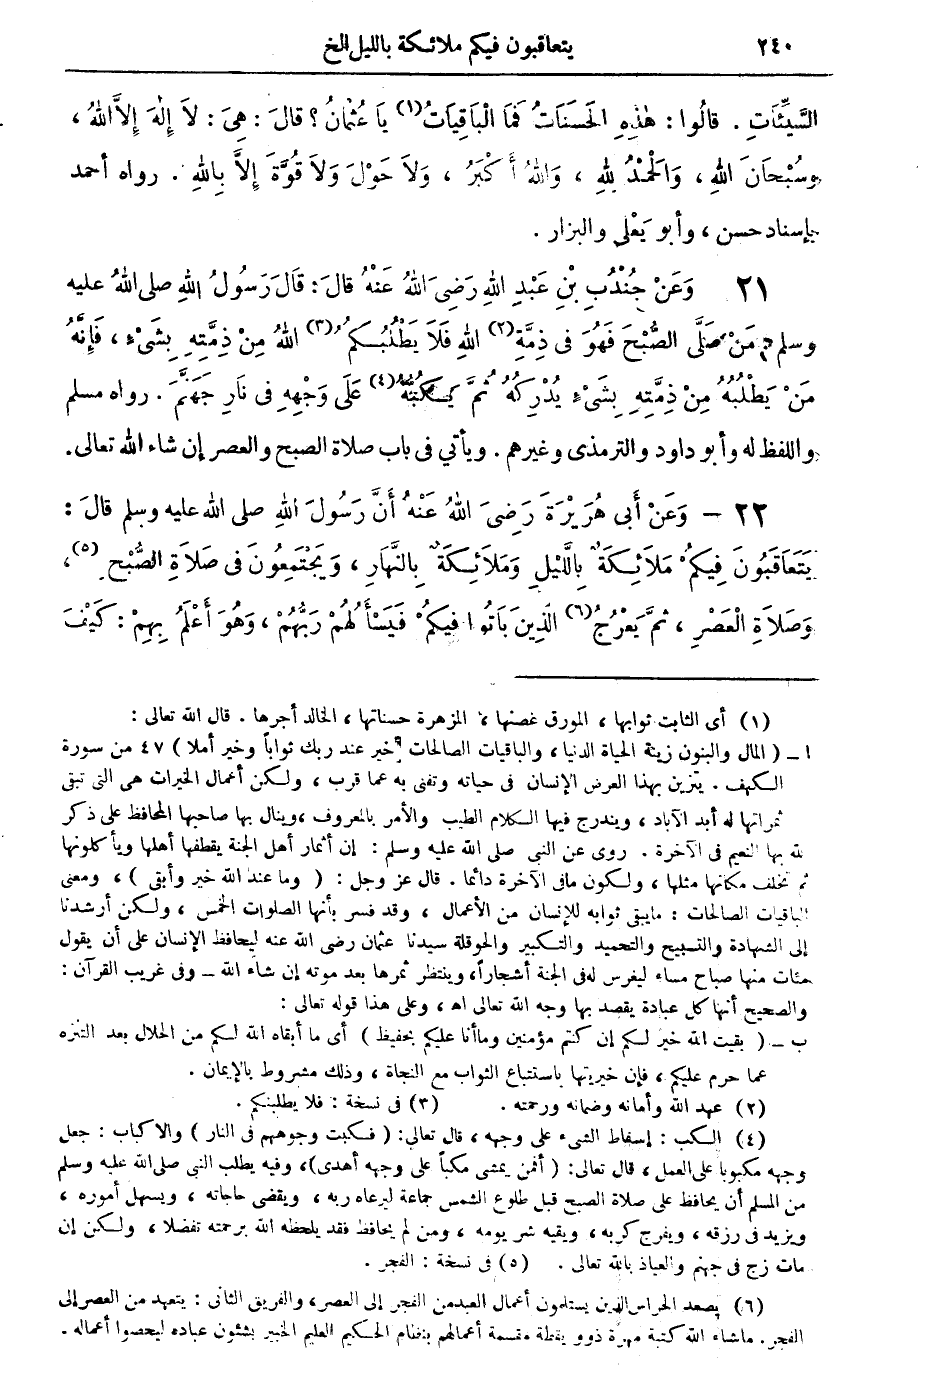 ٢٤٠ يتعاقبون فيكم ملائكة بالليل الخ
السَّيِّئَاتِ . قالُوا : هٰذِهِ الحَسَنَاتُ فَمَا الْبَاقِيَاتُ(١) يَا عُثْمَانُ ؟ قالَ : هِىَ : لاَ إِلٰهَ إِلاَّ اللهُ ،
وسُبْحَانَ اللهِ ، وَالْحَمْدُ لِلهِ ، وَاللهُ أَكْبَرُ ، وَلاَ حَوْلَ وَلاَ قُوَّةَ إِلاَّ بِاللهِ . رواه أحمد
بإسناد حسن ، وأبو يَعْلَى والبزار .
٢١ وَعَنْ جُنْدُبِ بْنِ عَبْدِ اللهِ رَضِىَ اللهُ عَنْهُ قالَ : قَالَ رَسُولُ اللهِ صلى اللهُ عليه
وسلم : مَنْ صَلَّى الصُّبْحَ فَهُوَ فى ذِمَّةِ(٢) اللهِ فَلاَ يَطْلُبُكُمُ(٣) اللهُ مِنْ ذِمَّتِهِ بِشَىْءٍ ، فَإِنَّهُ
مَنْ يَطْلُبْهُ مِنْ ذِمَّتِهِ بِشَىْءٍ يُدْرِكْهُ ثُمَّ يَكُبُّهُ(٤) عَلَى وَجْهِهِ فى نَارِ جَهَنَّمَ . رواه مسلم
واللفظ له وأبو داود والترمذى وغيرهم . ويأتي فى باب صلاة الصبح والعصر إن شاء الله تعالى.
٢٢ – وَعَنْ أَبى هُرَيْرَةَ رَضِىَ اللهُ عَنْهُ أَنَّ رَسُولَ اللهِ صلى الله عليه وسلم قالَ :
يَتَعَاقَبُونَ فِيكُمْ مَلاَئِكَةٌ بِاللَّيْلِ وَمَلاَئِكَةٌ بِالنَّهَارِ ، وَيَجْتَمِعُونَ فى صَلاَةِ الصُّبْحِ(٥) ،
وَصَلاَةِ الْعَصْرِ ، ثُمَّ يَعْرُجُ(٦) الَّذِينَ بَاتُوا فِيكُمْ فَيَسْأَلُهُمْ رَبُّهُمْ ، وَهُوَ أَعْلَمُ بِهِمْ : كَيْفَ
(١) أى الثابت ثوابها ، المورق غصنها ، المزهرة حسناتها ، الخالد أجرها . قال الله تعالى :
ا ـ ( المال والبنون زينة الحياة الدنيا ، والباقيات الصالحات خير عند ربك ثواباً وخير أملا ) ٤٧ من سورة
الكهف . يتزين بهذا العرض الإنسان فى حياته وتفنى به عما قرب ، ولكن أعمال الخيرات هى التى تبقى
ثمراتها له أبد الآباد ، ويندرج فيها الكلام الطيب والأمر بالمعروف ، وينال بها صاحبها المحافظ على ذكر
لله بها النعيم فى الآخرة . روى عن النبى صلى الله عليه وسلم : إن أثمار أهل الجنة يقطفها أهلها ويأكلونها
ثم تخلف مكانها مثلها ، ولكون مافى الآخرة دائما . قال عز وجل : ( وما عند الله خير وأبقى ) ، ومعنى
الباقيات الصالحات : مايبقى ثوابه للإنسان من الأعمال ، وقد فسر بأنها الصلوات الخمس ، ولكن أرشدنا
إلى الشهادة والتسبيح والتحميد والتكبير والحوقلة سيدنا عثمان رضى الله عنه ليحافظ الإنسان على أن يقول
مئات منها صباح مساء ليغرس له فى الجنة أشجاراً، وينتظر ثمرها بعد موته إن شاء الله ـ وفى غريب القرآن :
والصحيح أنها كل عبادة يقصد بها وجه الله تعالى اه ، وعلى هذا قوله تعالى :
ب ـ ( بقيت الله خير لكم إن كنتم مؤمنين وماأنا عليكم بحفيظ ) أى ما أبقاه الله لكم من الحلال بعد التنزه
عما حرم عليكم ، فإن خيريتها باستتباع الثواب مع النجاة ، وذلك مشروط بالإيمان .
(٢) عهد الله وأمانه وضمانه ورحمته . (٣) فى نسخة : فلا يطلبنكم .
(٤) الكب : إسقاط الشىء على وجهه ، قال تعالى: ( فكبت وجوههم فى النار ) والاكباب : جعل
وجهه مكبوبا على العمل ، قال تعالى: ( أفمن يمشى مكباً على وجهه أهدى)، وفيه يطلب النبى صلى الله عليه وسلم
من المسلم أن يحافظ على صلاة الصبح قبل طلوع الشمس جماعة ليرعاه ربه ، ويقضى حاجاته ، ويسهل أموره ،
ويزيد فى رزقه ، ويفرج كربه ، ويقيه شر يومه ، ومن لم يحافظ فقد يلحظه الله برحمته تفضلا ، ولكن إن
مات زج فى جهنم والعياذ بالله تعالى . (٥) فى نسخة : الفجر .
(٦) يصعد الحراس الذين يستلمون أعمال العبد من الفجر إلى العصر، والفريق الثانى : يتعهد من العصر إلى
الفجر. ماشاء الله كتبة مهرة ذوو يقظة مقسمة أعمالهم بنظام الحكيم العليم الخبير بشئون عباده ليحصوا أعماله .